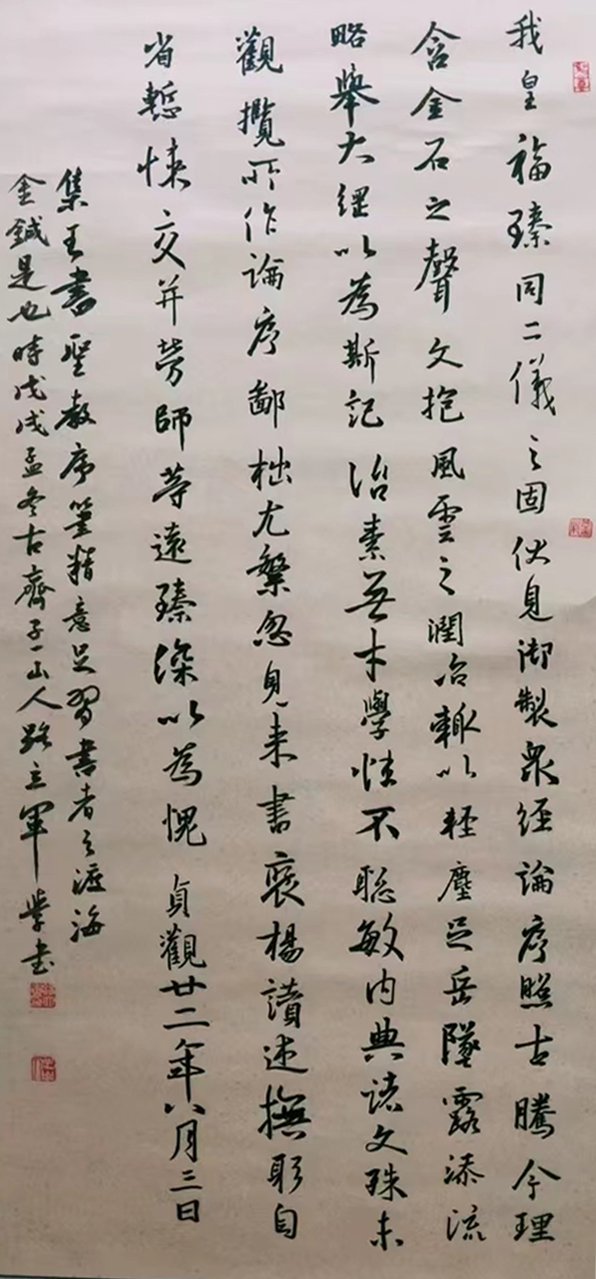 我皇福臻同二儀之固伏見御製衆經論序照古騰今理
含金石之聲文抱風雲之潤治輙以輕塵足岳墜露添流
略舉大綱以為斯記治素無才學性不聰敏內典諸文殊未
觀攬所作論序鄙拙尤繁忽見來書褒揚讚述撫躬自
省慙悚交并勞師等遠臻深以為愧 貞觀廿二年八月三日
集王書聖教序筆精意足習書者之渡海
金鍼是也時戊戌孟冬古齊子一山人路立軍學書